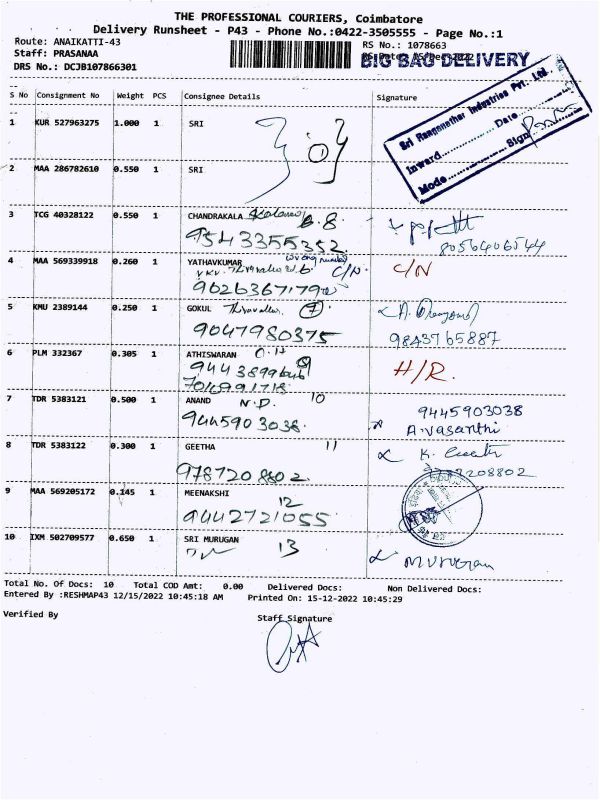 THE PROFESSIONAL COURIERS, Coimbatore
Delivery Runsheet - P43 - Phone No.:0422-3505555 - Page No.:1
Route: ANAIKATTI-43
RS No.: 1078663
Staff: PRASANAA
BIG BAG DELIVERY
DRS No.: DCJB107866301
S No Consignment No Weight PCS Consignee Details Signature
Sri Ranganathar Industries Pvt. Ltd.
Inward Date
Mode Sign
1 KUR 527963275 1.000 1 SRI
2 MAA 286782610 0.550 1 SRI
3 TCG 40328122 0.550 1 CHANDRAKALA
9543355352 8056406544
4 MAA 569339918 0.260 1 YATHAVKUMAR wrong number C/N C/N
9626367179
5 KMU 2389144 0.250 1 GOKUL 7
9047980375 9843765887
6 PLM 332367 0.305 1 ATHISWARAN H/R.
7 TDR 5383121 0.500 1 ANAND N.D. 10 9445903038
9445903038 A.vasanthi
8 TDR 5383122 0.300 1 GEETHA 11
9787208802
9 MAA 569205172 0.145 1 MEENAKSHI 12
9442721055
10 IXM 502709577 0.650 1 SRI MURUGAN 13 Murugan
Total No. Of Docs: 10 Total COD Amt: 0.00 Delivered Docs: Non Delivered Docs:
Entered By :RESHMAP43 12/15/2022 10:45:18 AM Printed On: 15-12-2022 10:45:29
Verified By Staff Signature